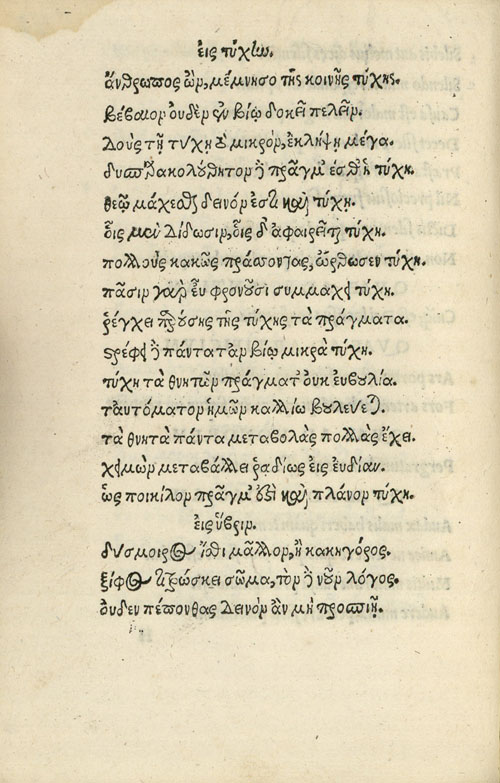 εἰς τύχην.
ἄνθρωπος ὢν, μέμνησο τῆς κοινῆς τύχης.
βέβαιον οὐδὲν ἐν βίῳ δοκεῖ πέλειν.
Δοὺς τῇ τύχῃ τὸ μικρὸν, ἐκλήψῃ μέγα.
δυσπαρακολούθητον τὶ πρᾶγμ' ἐσθ' ἡ τύχη.
θεῷ μάχεσθαι δεινόν ἐστι καὶ τύχῃ.
οἷς μὲν δίδωσιν, οἷς δ' ἀφαιρεῖται τύχη.
πολλοὺς κακῶς πράσσοντας, ὤρθωσεν τύχη.
πᾶσιν γὰρ εὖ φρονοῦσι συμμαχεῖ τύχη.
ῥέγχει παρούσης τῆς τύχης τὰ πράγματα.
στρέφει τὶ πάντα τἀν βίῳ μικρὰ τύχη.
τύχη τὰ θνητῶν πράγματ' οὐκ εὐβουλία.
ταὐτόματον ἡμῶν καλλίω βουλεύεται.
τὰ θνητὰ πάντα μεταβολὰς πολλὰς ἔχει.
χειμὼν μεταβάλλει ῥαδίως εἰς εὐδίαν.
ὡς ποικίλον πρᾶγμ' ἐστὶ καὶ πλάνον τύχη.
εἰς ὕβριν.
δύσμορφος ἴσθι μᾶλλον, ἢ κακηγόρος.
ξίφος τιτρώσκει σῶμα, τὸν τὶ νοῦν λόγος.
οὐδεν πέπονθας δεινὸν ἂν μὴ προσπιῇ.